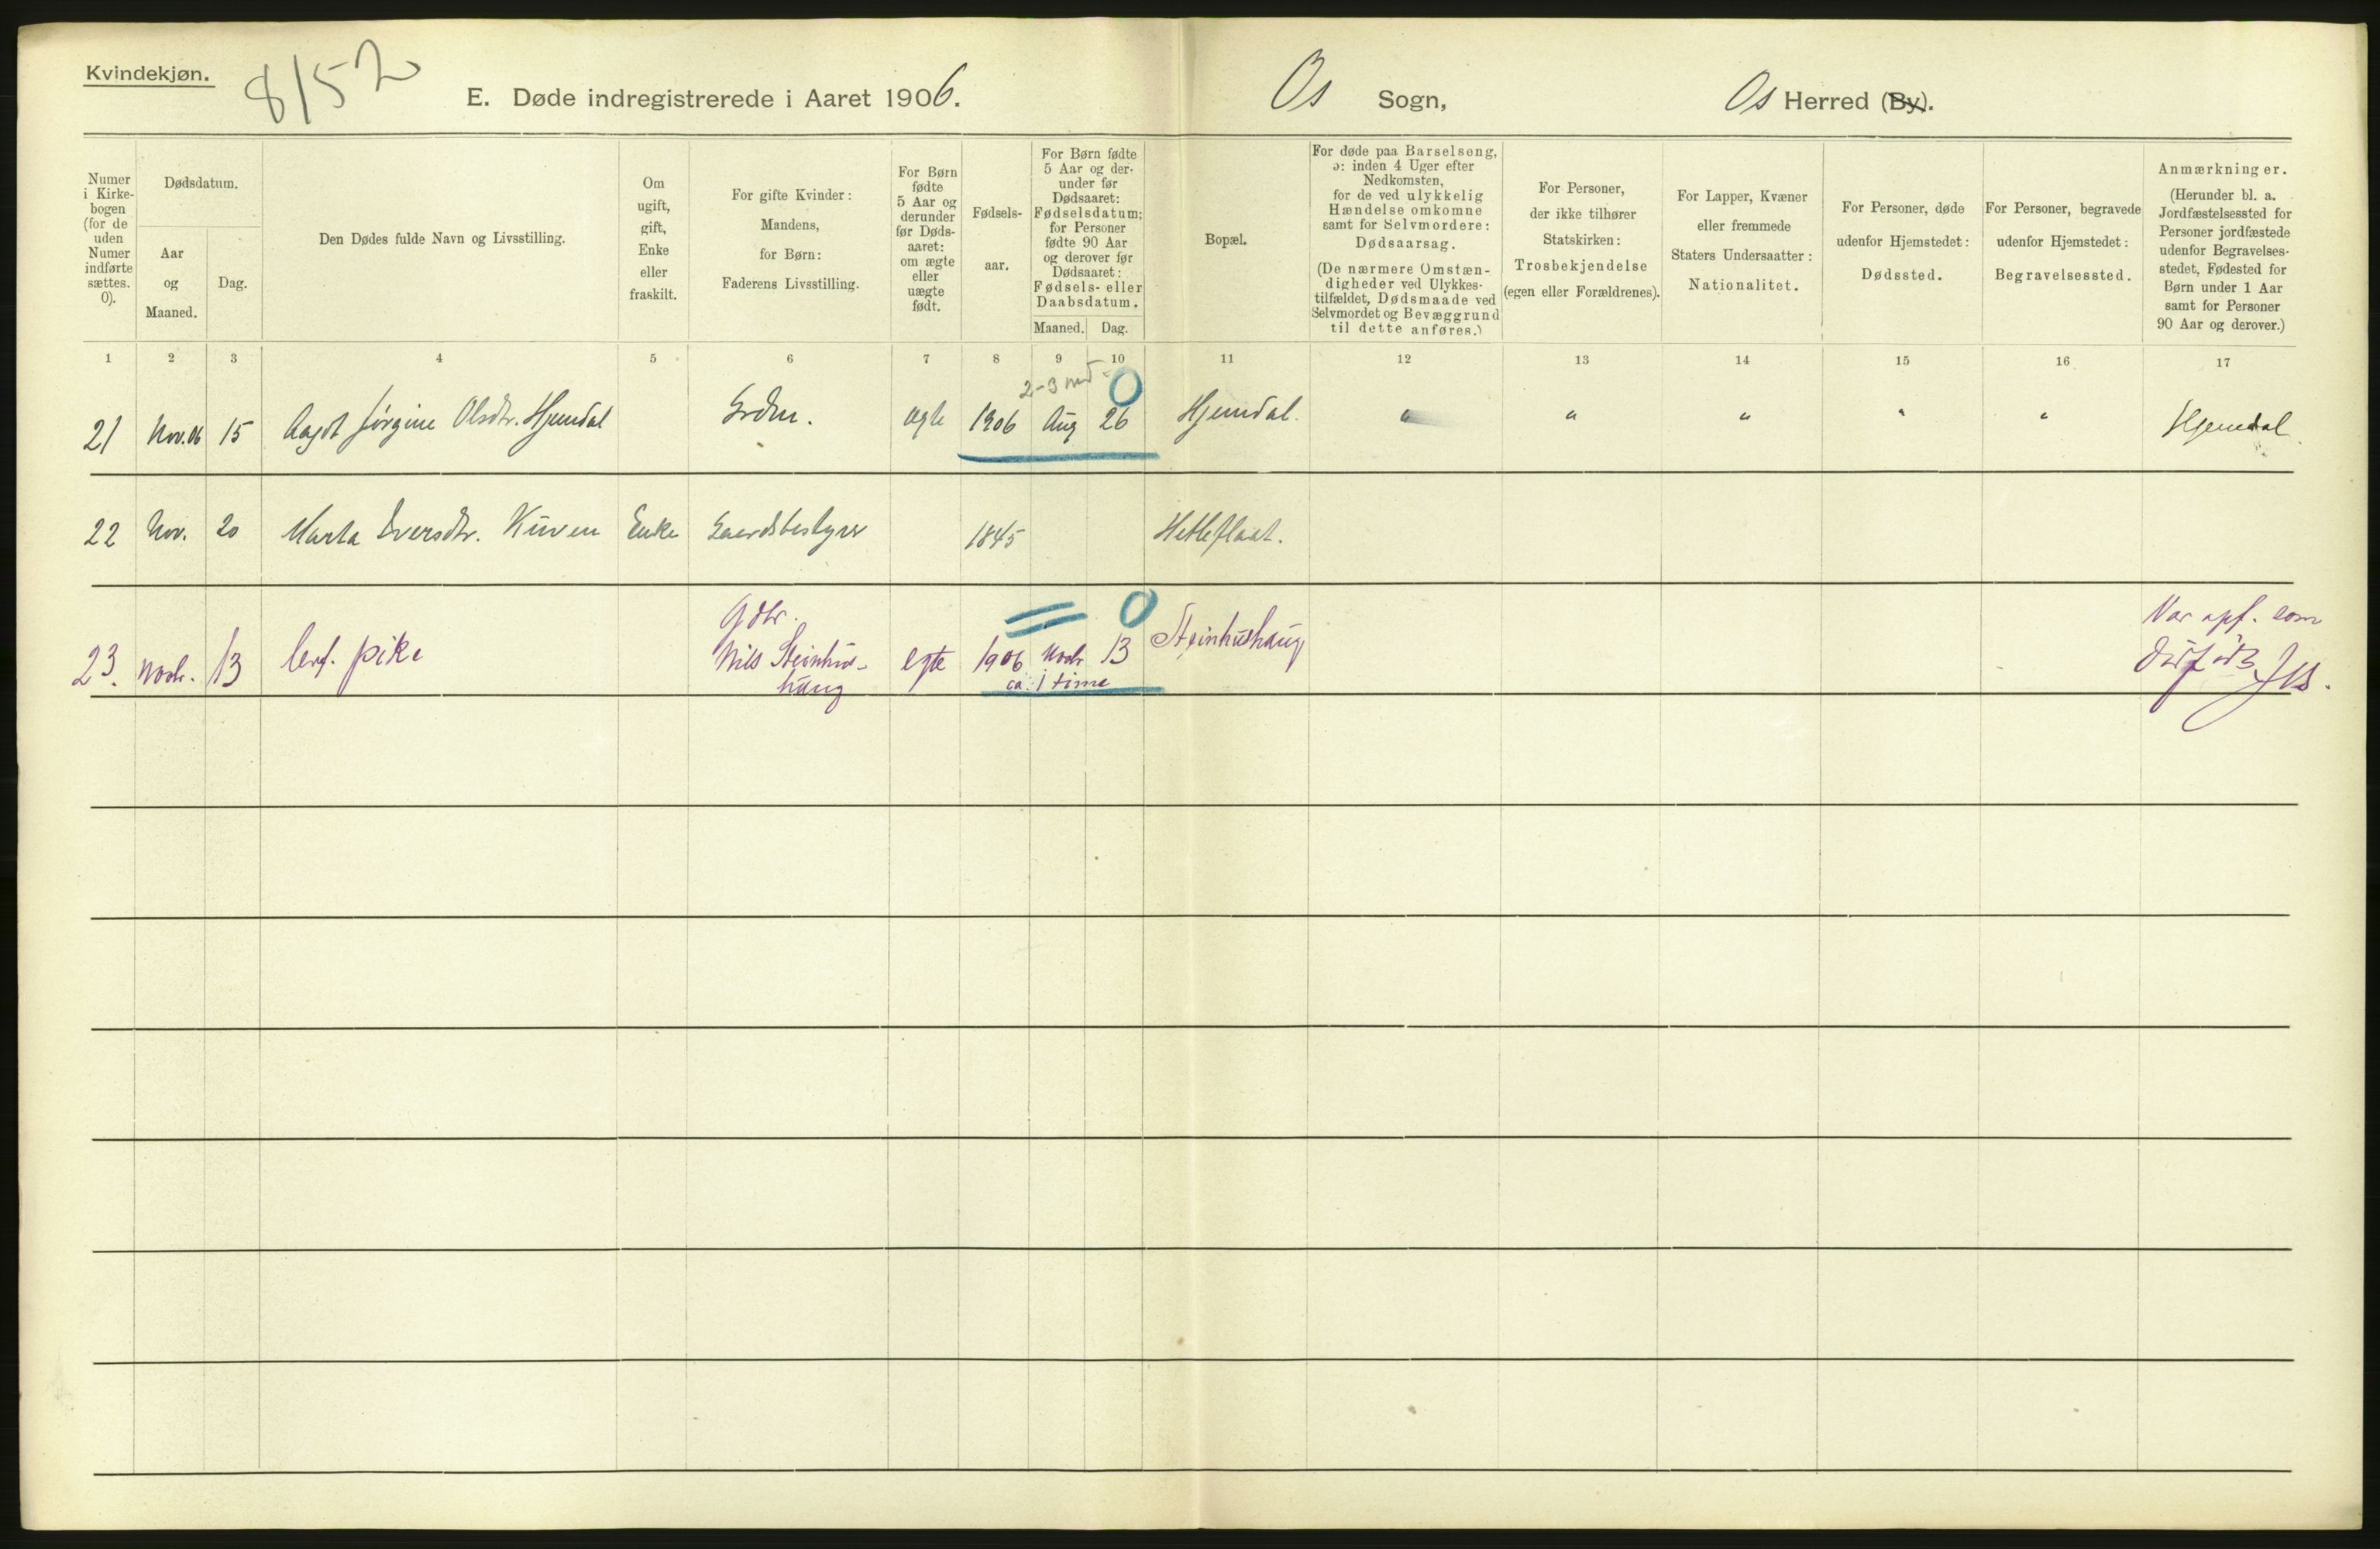 Kvindekjøn.
8152
E. Døde indregistrerede i Aaret 1906.
Os Sogn,
Os Herred (By).
Numer
i Kirke-
bogen
(for de
uden
Numer
indførte
sættes.
0).
Dødsdatum.
Aar
og
Maaned.
Dag.
Den Dødes fulde Navn og Livsstilling.
Om
ugift,
gift,
Enke
eller
fraskilt.
For gifte Kvinder:
Mandens,
for Børn:
Faderens Livsstilling.
For Børn
fødte
5 Aar og
derunder
før Døds-
aaret:
om ægte
eller
uægte
født.
Fødsels-
aar.
For Børn fødte
5 Aar og der-
under før
Dødsaaret:
Fødselsdatum;
for Personer
fødte 90 Aar
og derover før
Dødsaaret:
Fødsels- eller
Daabsdatum.
Maaned. Dag.
Bopæl.
For døde paa Barselseng,
ɔ: inden 4 Uger efter
Nedkomsten,
for de ved ulykkelig
Hændelse omkomne
samt for Selvmordere:
Dødsaarsag.
(De nærmere Omstæn-
digheder ved Ulykkes-
tilfældet, Dødsmaade ved
Selvmordet og Bevæggrund
til dette anføres.)
For Personer,
der ikke tilhører
Statskirken:
Trosbekjendelse
(egen eller Forældrenes).
For Lapper, Kvæner
eller fremmede
Staters Undersaatter:
Nationalitet.
For Personer, døde
udenfor Hjemstedet:
Dødssted.
For Personer, begravede
udenfor Hjemstedet:
Begravelsessted.
Anmærkninger.
(Herunder bl. a.
Jordfæstelsessted for
Personer jordfæstede
udenfor Begravelses-
stedet, Fødested for
Børn under 1 Aar
samt for Personer
90 Aar og derover.)
1 2 3 4 5 6 7 8 9 10 11 12 13 14 15 16 17
2-3 md 0
21 Nov. 06 15 Aagot Jørgine Olsdtr. Hjemdal ægte 1906 Aug 26 Hjemdal. " " " " " Hjemdal
22 Nov. 20 Marta Iversdtr. Kuven Enke Gaardsbestyrer 1845 Hetleflaat.
Gdbr. 0
23. Novbr. 13 pike Nils Steinhus- egte 1906 Novbr 13 Steinhushaug Var opf. som
haug ca. 1 time